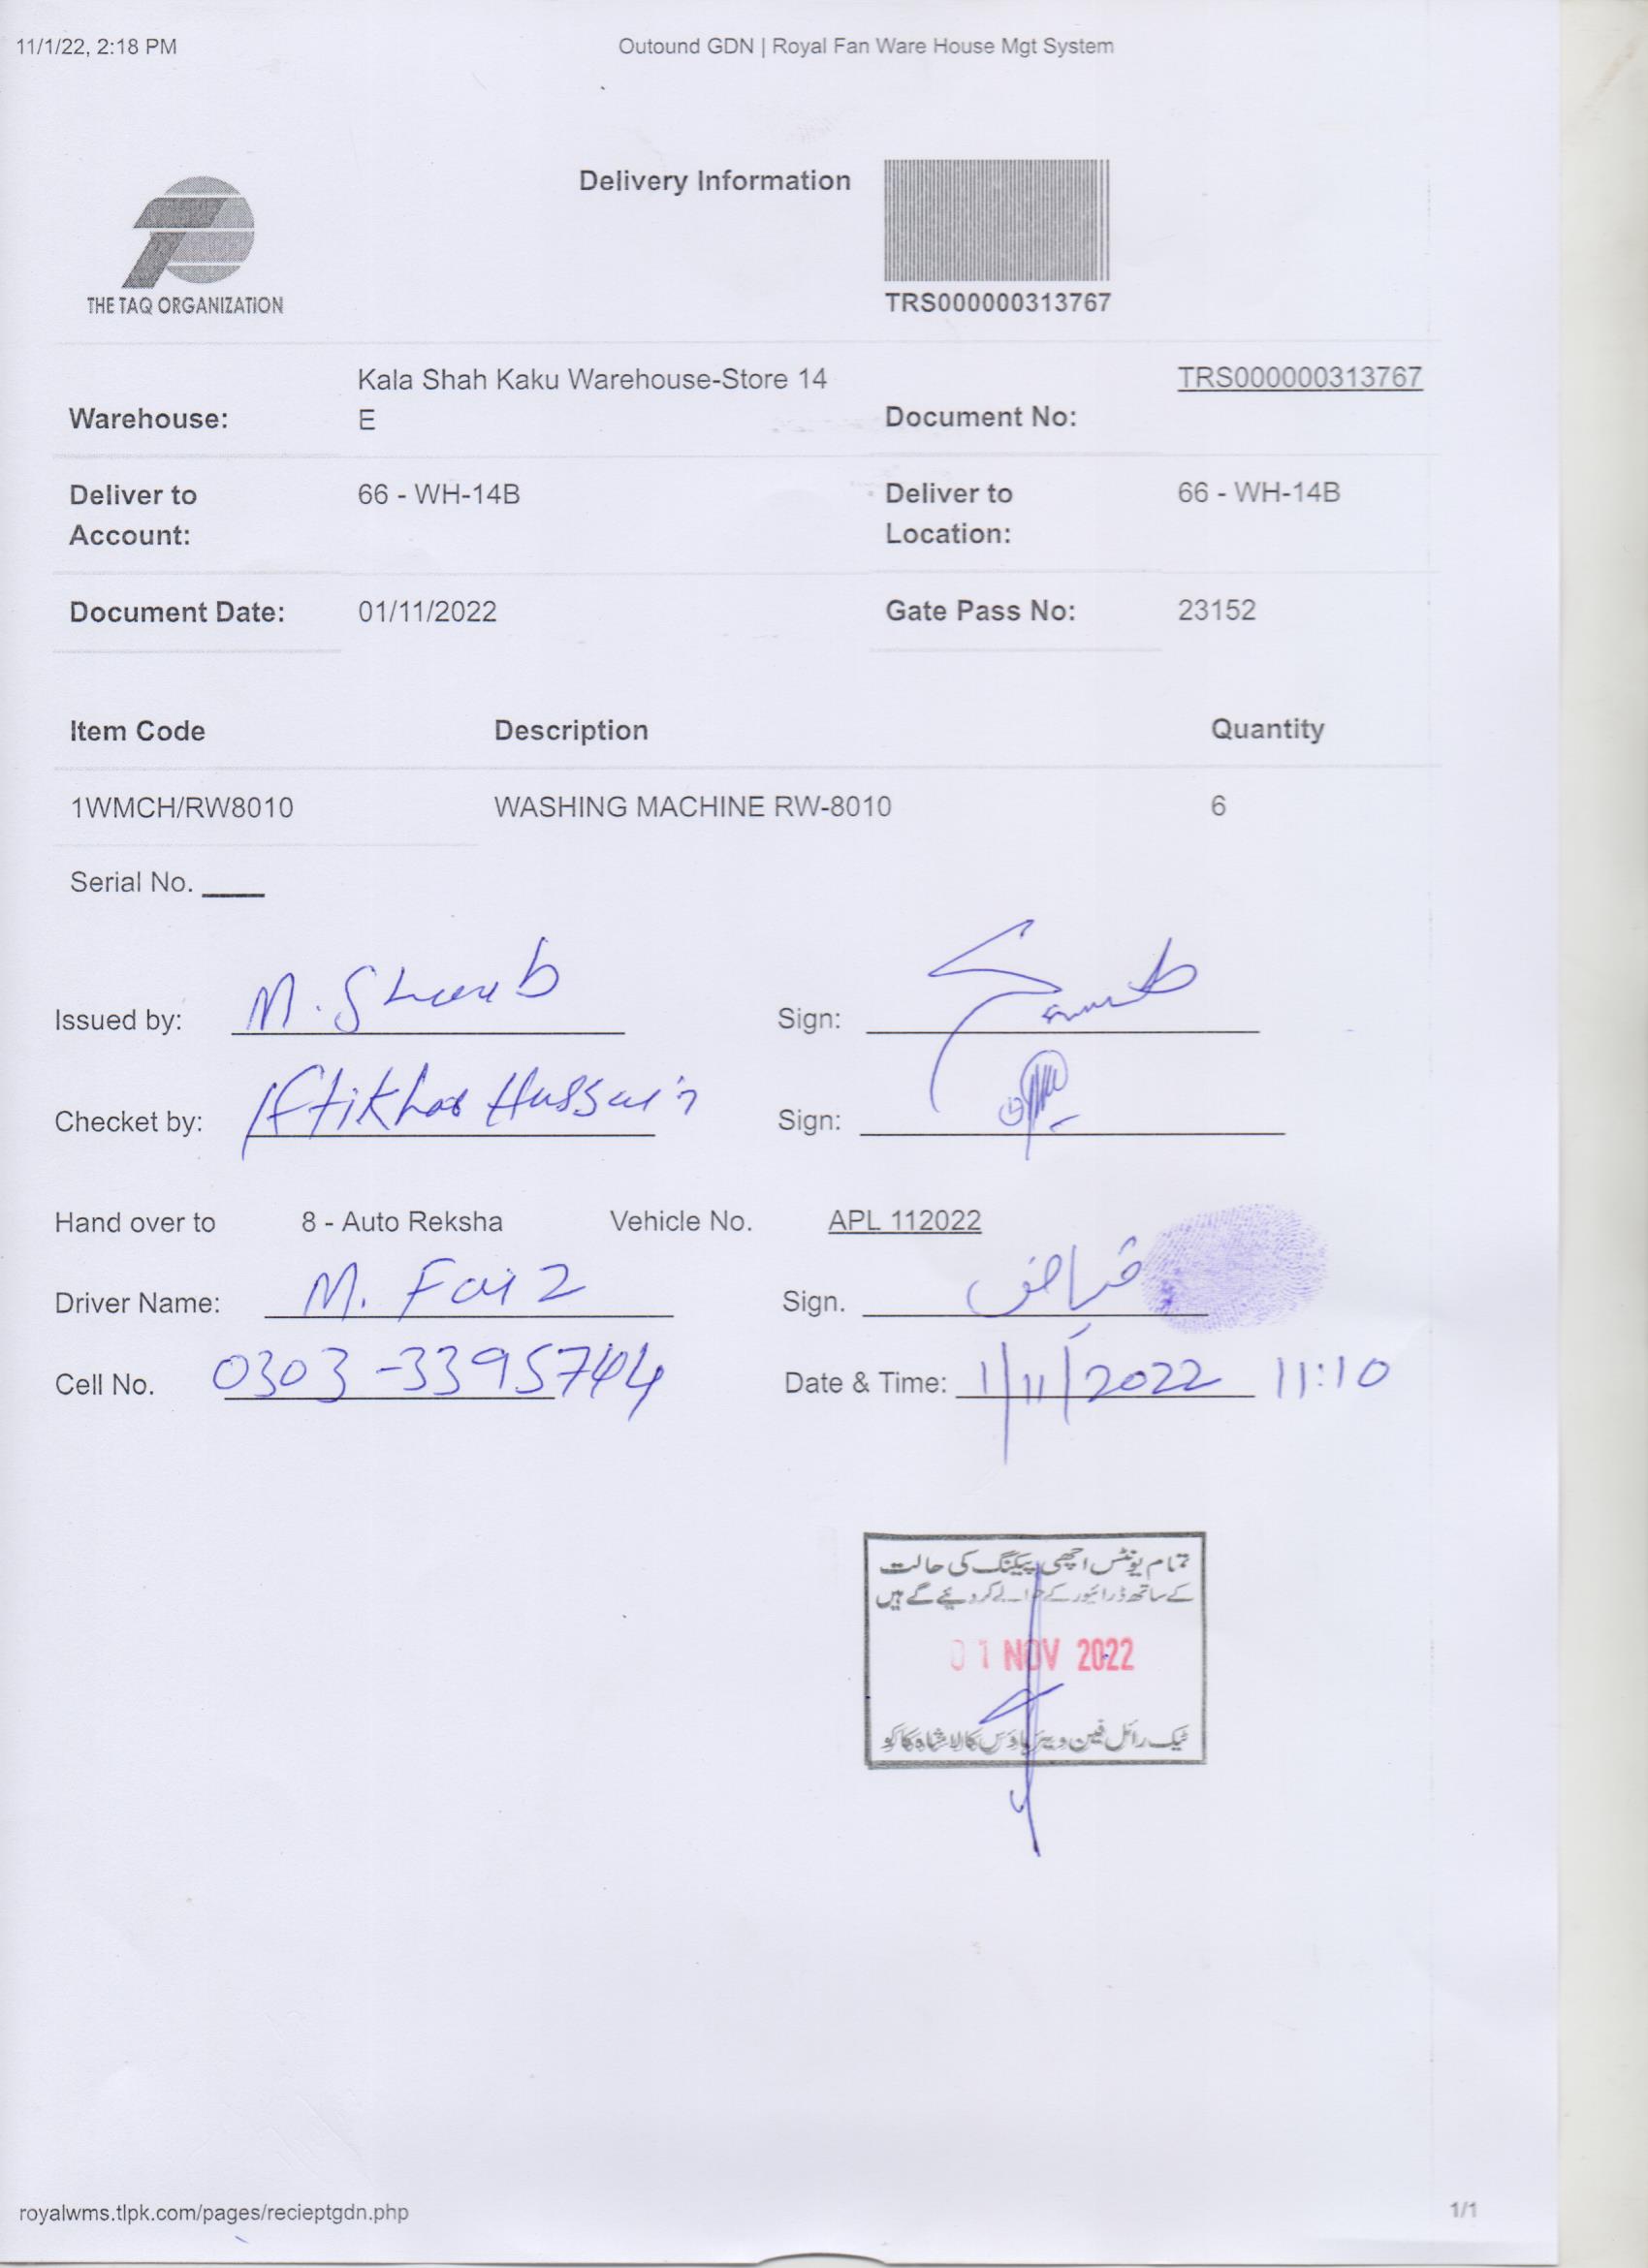 11/1/22, 2:18 PM Outound GDN | Royal Fan Ware House Mgt System
Delivery Information
THE TAQ ORGANIZATION
TRS000000313767
Warehouse: Kala Shah Kaku Warehouse-Store 14 E Document No: TRS000000313767
Deliver to Account: 66 - WH-14B Deliver to Location: 66 - WH-14B
Document Date: 01/11/2022 Gate Pass No: 23152
Item Code Description Quantity
1WMCH/RW8010 WASHING MACHINE RW-8010 6
Serial No.
Issued by: M. Sign:
Checket by: Iftikhar Hussain Sign:
Hand over to 8 - Auto Reksha Vehicle No. APL 112022
Driver Name: M. Faiz Sign.
Cell No. 0303-3395744 Date & Time: 1/11/2022 11:10
تمام یونٹس اچھی پیکنگ کی حالت
کے ساتھ ڈرائیور کے حوالے کر دیئے گے ہیں
01 NOV 2022
ٹیک رائل فین ویئر ہاؤس کالا شاہ کاکو
royalwms.tlpk.com/pages/recieptgdn.php 1/1